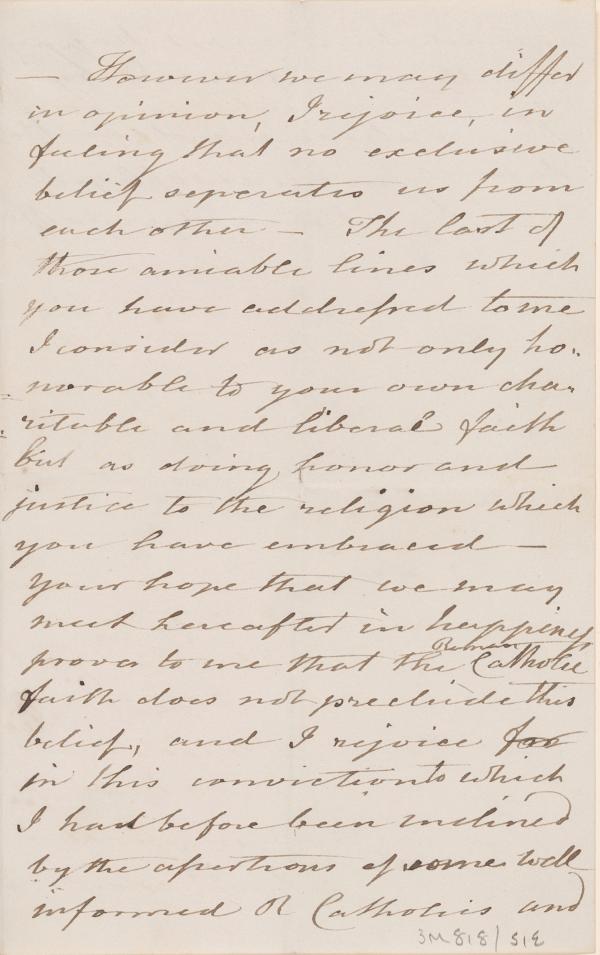 — However we may differ
in opinion, I rejoice, in
feeling that no exclusive
belief seperates us from
each other — The last of
those amiable lines which
you have addressed to me
I consider as not only ho-
norable to your own cha-
ritable and liberal faith
but as doing honor and
justice to the religion which
you have embraced —
your hope that we may
meet hereafter in happiness
proves to me that the Roman Catholic
faith does not preclude this
belief, and I rejoice for
in this conviction to which
I had before been inclined
by the assertions of some well
informed R Catholics and
3M818/512